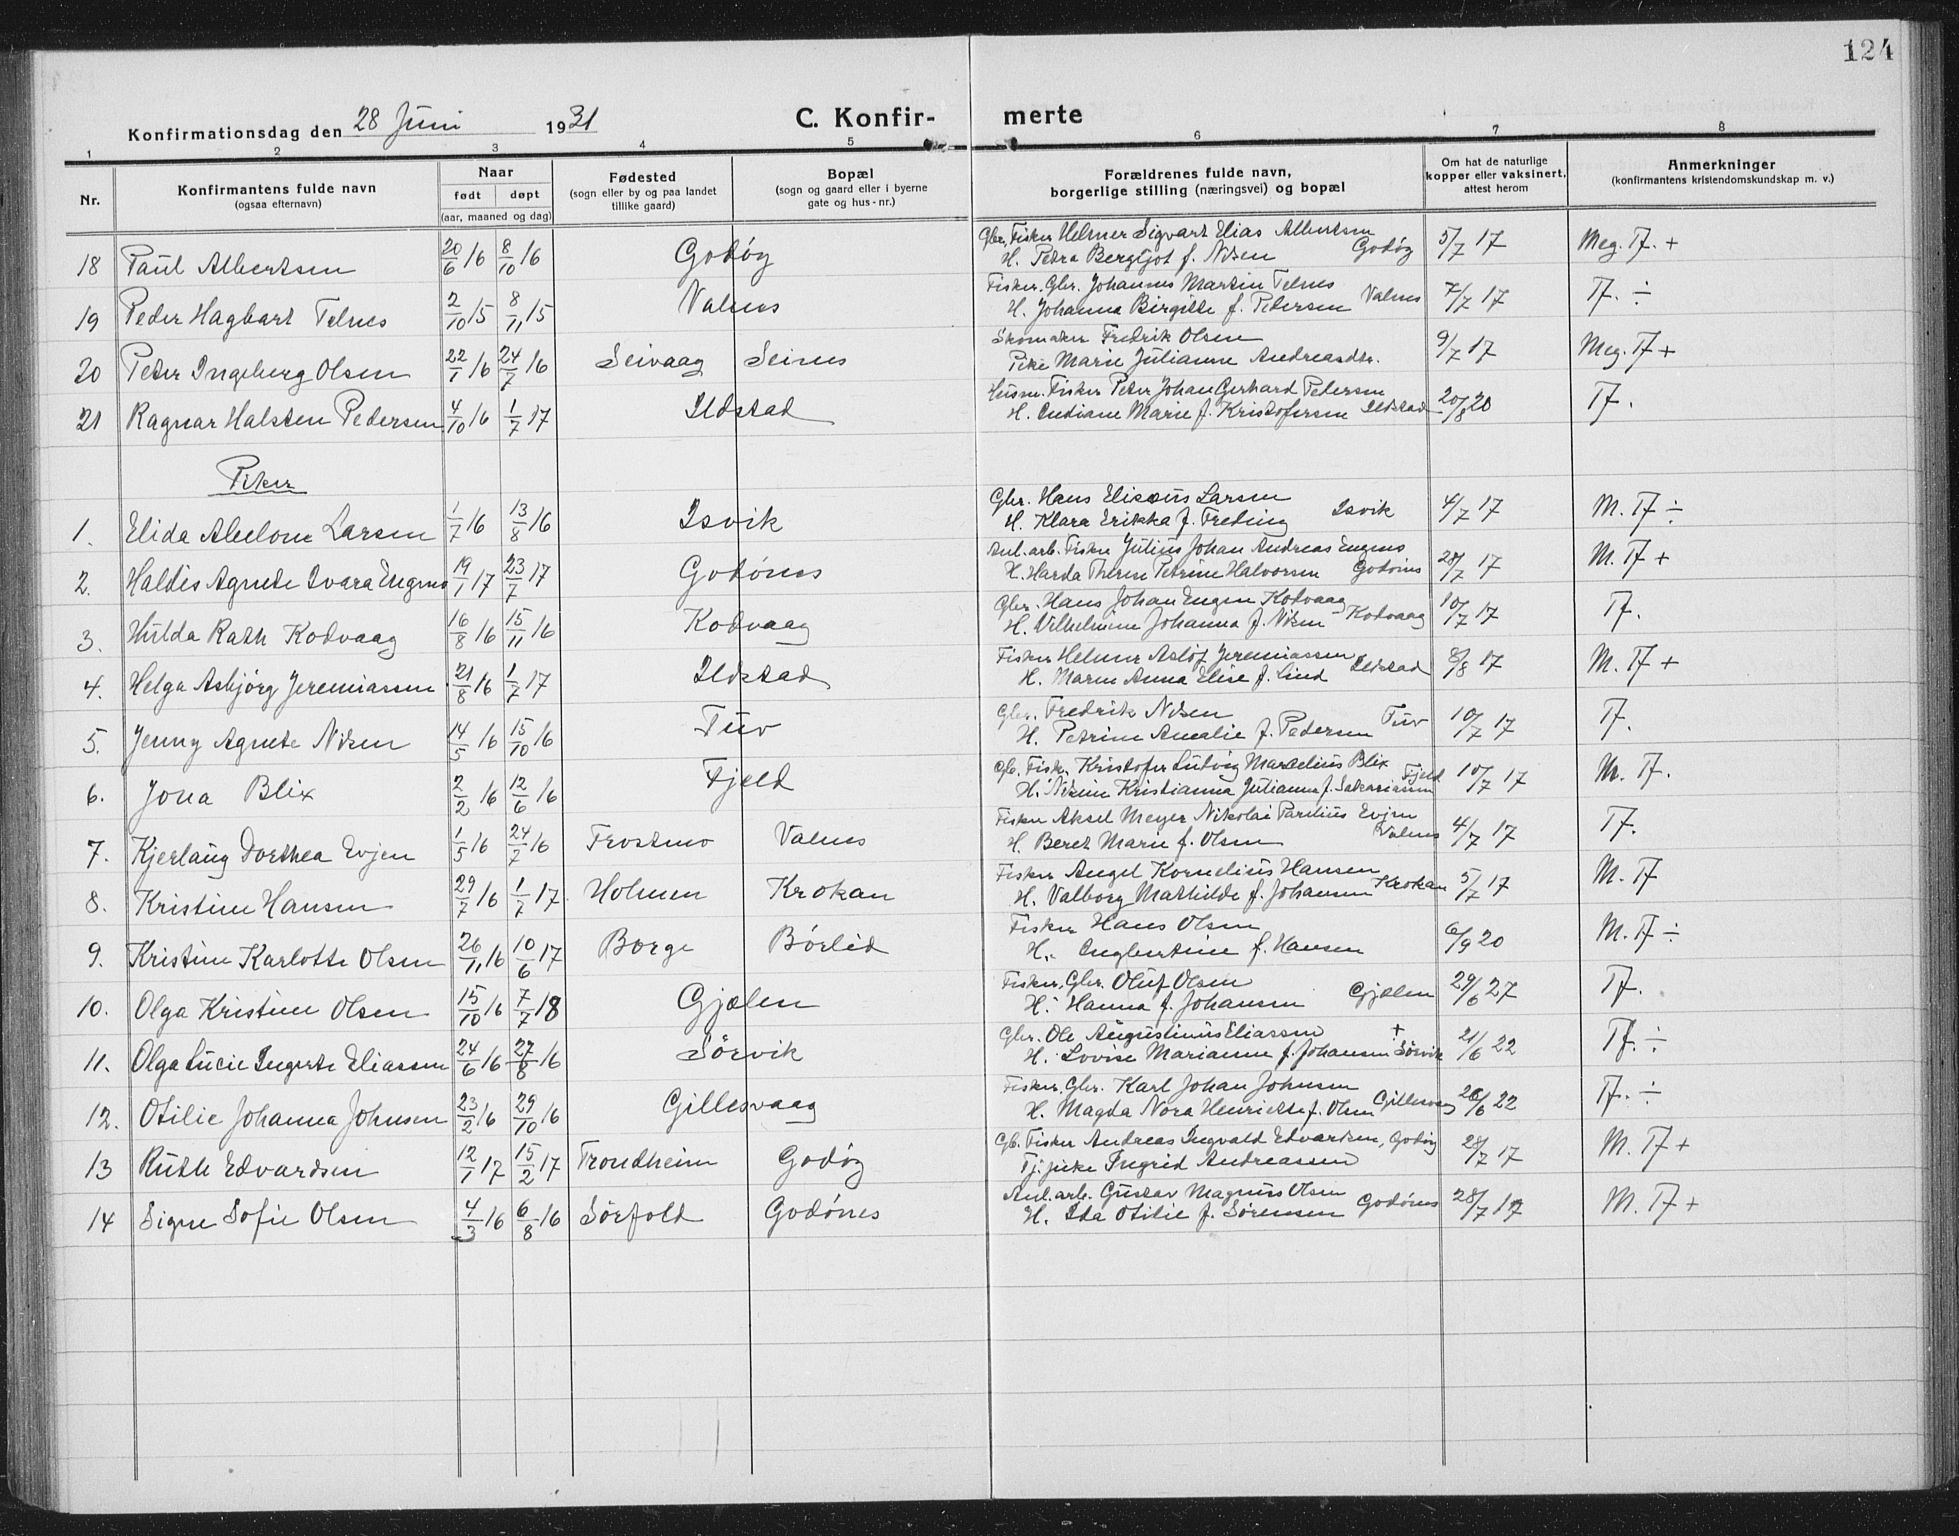 124
Konfirmationsdag den 28 Juni 1931 C. Konfir- merte
1 2 3 4 5 6 7 8
Nr. Konfirmantens fulde navn (ogsaa efternavn) Naar født døpt (aar, maaned og dag) Fødested (sogn eller by og paa landet tillike gaard) Bopæl (sogn og gaard eller i byerne gate og hus-nr.) Forældrenes fulde navn, borgerlige stilling (næringsvei) og bopæl Om hat de naturlige kopper eller vaksinert, attest herom Anmerkninger (konfirmantens kristendomskundskap m. v.)
18 Paul Albertsen 20/6 16 8/10 16 Godøy Gbr. Fisker Helmer Sigvart Elias Albertsen
H. Petra Bergljot f. Nilsen Godøy 5/7 17 Meg. Tf. +
19 Peder Hagbart Telnes 2/10 15 8/11 15 Valnes Fisker. Gbr. Johannes Martin Telnes
H. Johanna Birgitte f. Pedersen Valnes 7/7 17 Tf. ÷
20 Peter Ingeberg Olsen 22/1 16 24/7 16 Seivaag Seines Skomaker Fredrik Olsen
Pike Marie Julianne Andreasdtr. 9/7 17 Meg. Tf +
21 Ragnar Halsten Pedersen 4/10 16 1/7 17 Ildstad Husm. Fisker Peter Johan Gerhard Pedersen
H. Indiane Marie f. Kristofersen Ildstad 20/8 20 Tf.
Piker
1. Elida Abelone Larsen 1/7 16 13/8 16 Isvik Gbr. Hans Eliseus Larsen
H. Klara Erikka f. Freding Isvik 4/7 17 M. Tf ÷
2. Haldis Agnete Ivara Engnes 19/1 17 23/7 17 Godønes Anl. arb. Fisker Julius Johan Andreas Engenes
H. Harda Therese Petrine Halvorsen Godønes 28/7 17 M. Tf +
3. Hilda Rath Kodvaag 16/8 16 15/11 16 Kodvaag Gbr. Hans Johan Eugen Kodvaag
H. Vilhelmine Johanna f. Nilsen Kodvaag 10/7 17 Tf.
4. Helga Asbjörg Jeremiassen 21/8 16 1/7 17 Ildstad Fisker Helmer Asløf Jeremiassen
H. Maren Anna Elise f. Lind Ildstad 8/8 17 M. Tf +
5. Jenny Agnete Nilsen 14/5 16 15/10 16 Tuv Gbr. Fredrik Nilsen
H. Petrine Amalie f. Pedersen Tuv 10/7 17 Tf.
6. Jona Blix 2/2 16 12/6 16 Fjeld Gb. Fisk. Kristofer Ludvig Marselius Blix
H. Nikoline Kristianna Julianna f. Sakariassen Fjeld 10/7 17 M. Tf.
7. Kjerlaug Dorthea Evjen 1/5 16 24/7 16 Frostmo Valnes Fisker Aksel Meyer Nikolai Parelius Evjen
H. Beret Marie f. Olsen Valnes 4/7 17 Tf.
8. Kristine Hansen 29/7 16 1/7 17 Holmen Krokan Fisker Angel Kornelius Hansen
H. Valborg Mathilde f. Johansen Krokan 5/7 17 M. Tf
9. Kristine Karlotte Olsen 26/11 16 10/6 17 Borge Börlid Fisker Hans Olsen
H. Ingbertine f. Hansen 6/9 20 M. Tf ÷
10. Olga Kristine Olsen 15/10 16 7/7 18 Gjælen Fisker. Gbr. Oluf Olsen
H. Hanna f. Johansen Gjælen 29/6 27 Tf.
11. Olga Lucie Ingerte Eliassen 24/6 16 27/8 16 Sörvik Gbr. Ole Augustinus Eliassen +
H. Lovise Marianne f. Johansen Sörvik 21/6 22 Tf. ÷
12. Otilie Johanna Johnsen 23/2 16 29/10 16 Gillesvaag Fisker. Gbr. Karl Johan Johnsen
H. Magda Nora Henriette f. Olsen Gillesvaag 26/6 22 Tf. ÷
13 Ruth Edvardsen 12/1 17 15/2 17 Trondheim Godøy Gb. Fisker Andreas Ingvald Edvardsen, Godøy
Tj. pike Ingrid Andreassen 28/7 17 M. Tf +
14 Signe Sofie Olsen 4/3 16 6/8 16 Sörfold Godönes Anl. arb. Gustav Magnus Olsen
H. Ida Otilie f. Sörensen Godönes 28/7 17 M. Tf +